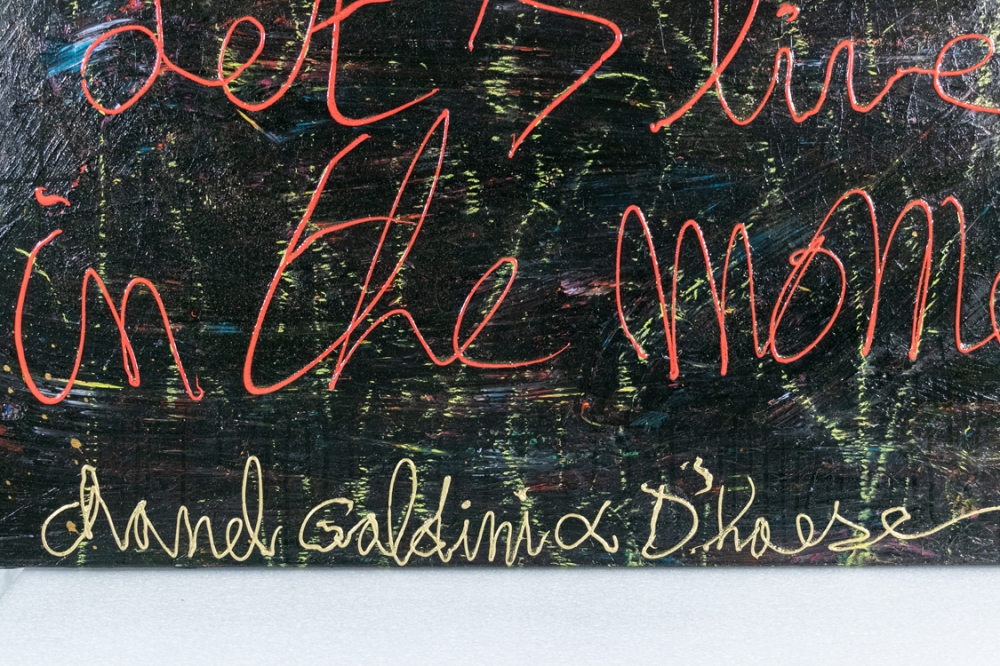 let's live
in the mome
chanel Galdini α D'haese